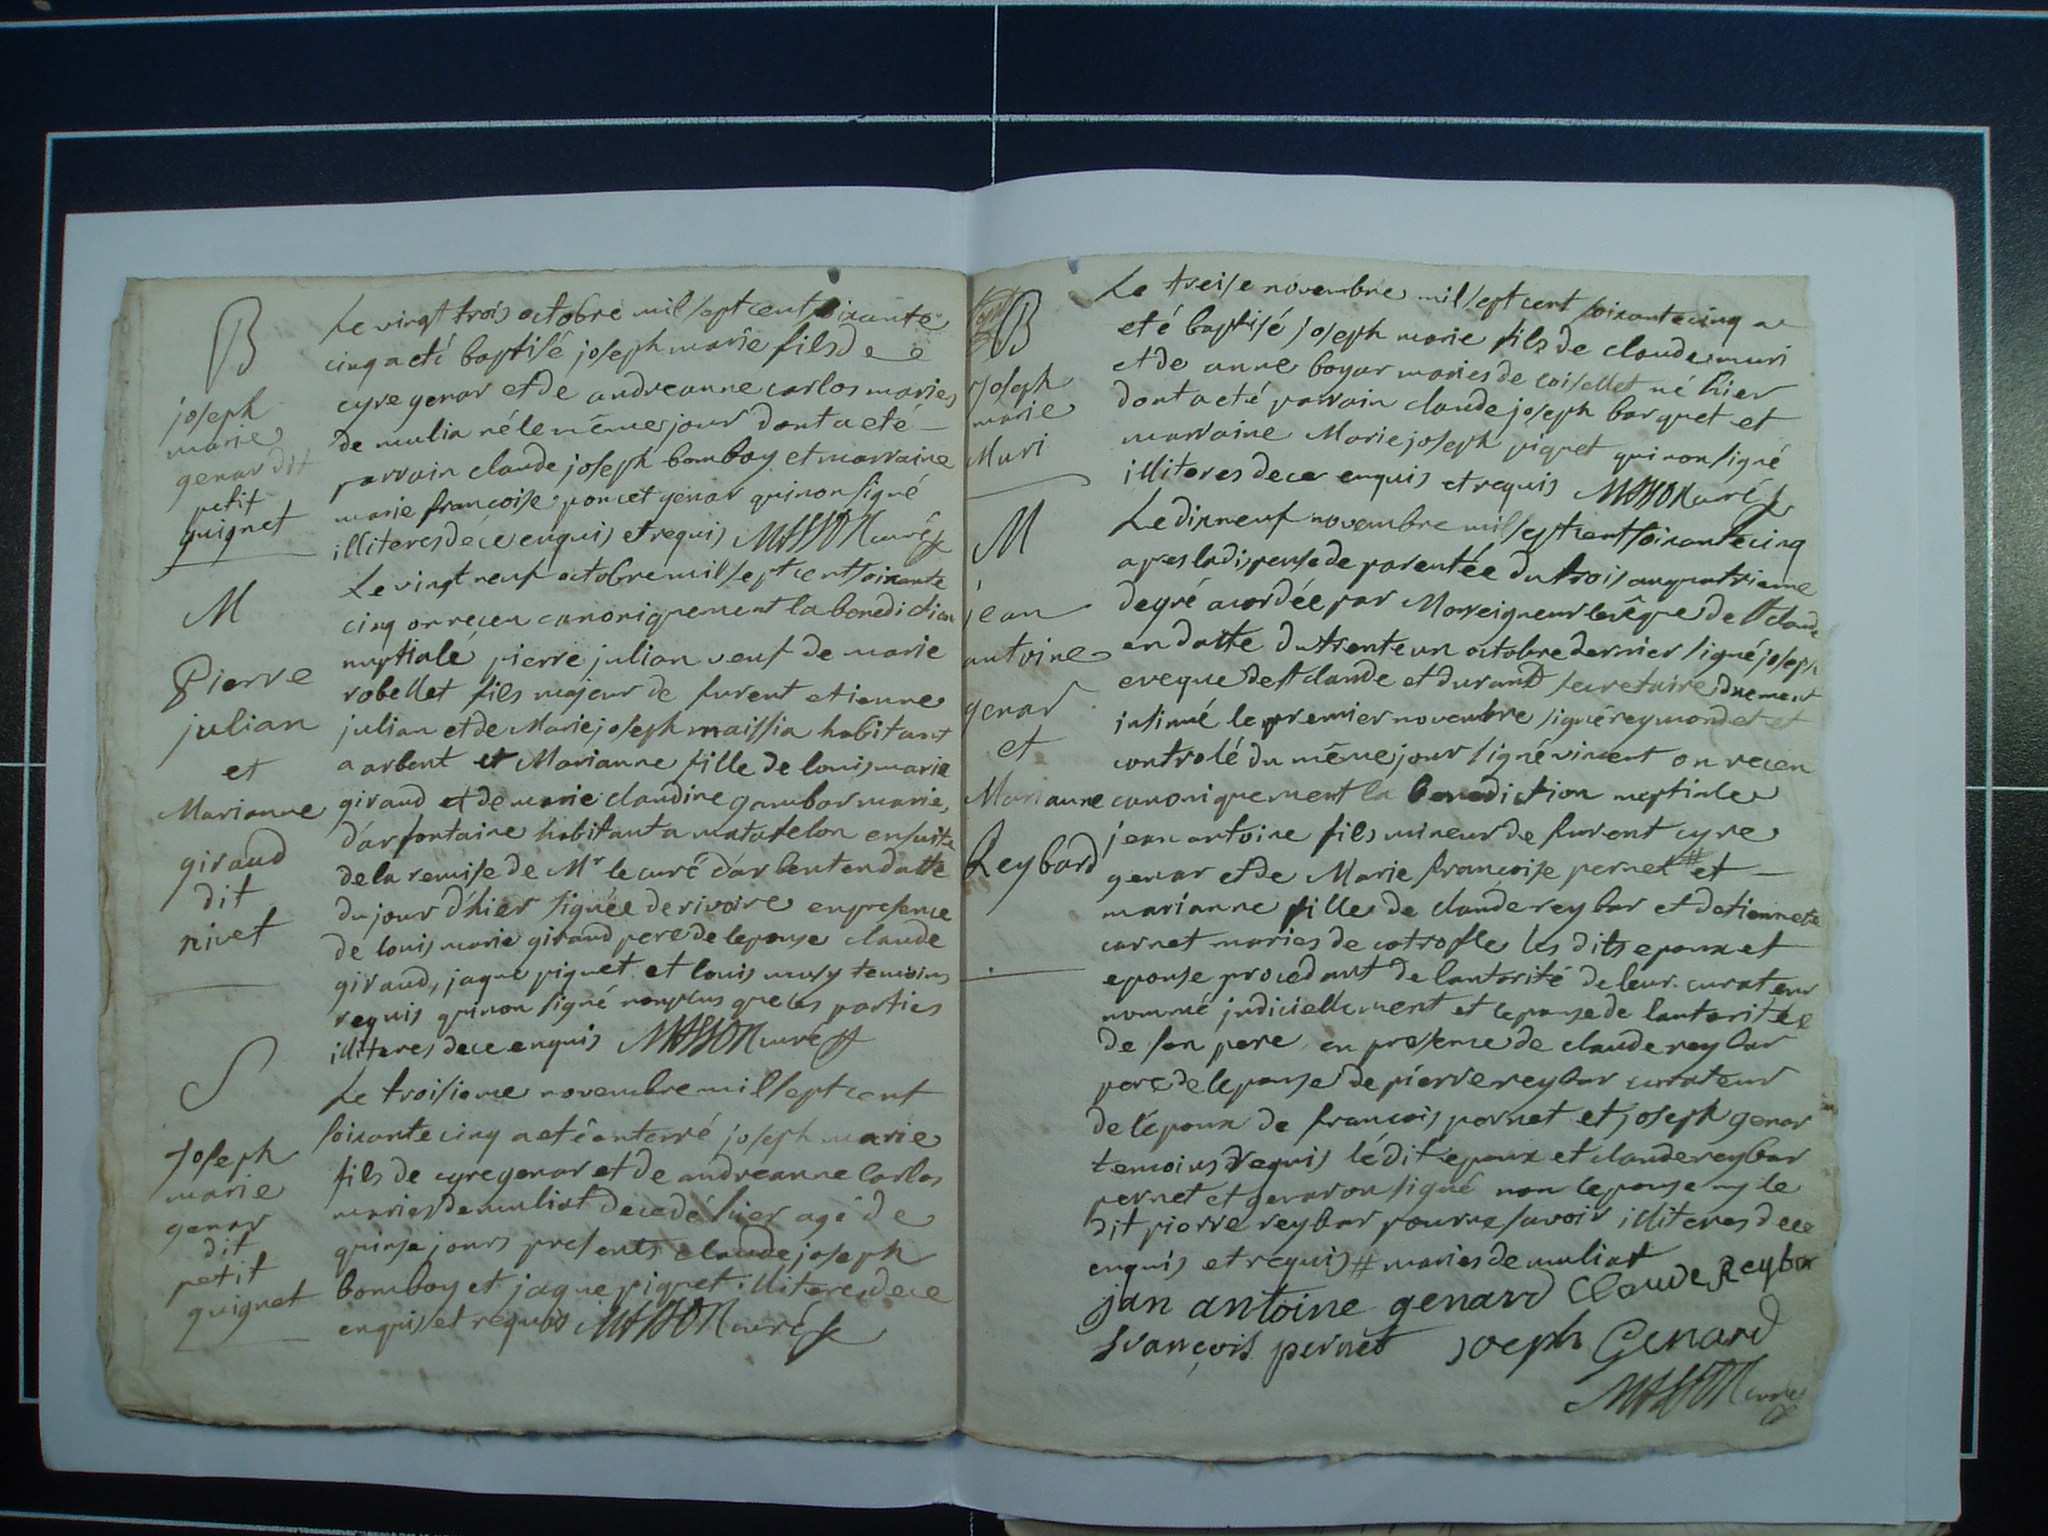 B
joseph
marie
genar dit
petit
guignet
Le vingt trois octobre mil sept cent soixante
cinq a eté baptisé joseph marie fils de
cyre genar et de andreanne carlos maries
de mulia né le même jour dont a eté
parrain claude joseph bomboy et marraine
marie françoise poncet genar qui non signé
illiteres de ce enquis et requis MASSON curé
M
Pierre
julian
et
Marianne
giraud
dit
nivet
Le vingt neuf octobre mil sept cent soixante
cinq on receu canoniquement la benediction
nuptiale pierre julian veuf de marie
robellet fils majeur de furent etienne
julian et de Marie joseph maissia habitant
a arbent et Marianne fille de louis marie
giraud et de marie claudine gambar maries
d'arfontaine habitant a matafelon ensuitte
de la remise de Mr le curé d'arbent en datte
du jour d'hier signée derivoire en presence
de louis marie giraud pere de lepouse claude
giraud, jaque piquet et louis mury temoins
requis qui non signé non plus que les parties
illiteres de ce enquis MASSON curé
S
joseph
marie
genar
dit
petit
guignet
Le troisieme novembre mil sept cent
soixante cinq a eté enterré joseph marie
fils de cyre genar et de andreanne Carlos
maries de muliat decedé hier agé de
quinse jours presents claude joseph
bomboy et jaque piquet illiteres de ce
enquis et requis MASSON curé
B
joseph
marie
Muri
Le treise novembre mil sept cent soixante cinq a
eté baptisé joseph marie fils de claude muri
et de anne boyar maries de coisellet né hier
dont a eté parrain claude joseph barquet et
marraine Marie joseph piquet qui non signé
illiteres de ce enquis et requis MASSON curé
M
jean
antoine
genar
et
Marianne
Reybard
Le dixneuf novembre mil sept cent soixante cinq
apres la dispense de parentée du trois au quatrieme
degré acordée par Monseigneur levêque de St claude
en datte du trente un octobre dernier signé joseph
eveque de St claude et durand secretaire duement
insinué le premier novembre signé reymondet et
controlé du même jour signé vincent on receu
canoniquement la benediction nuptiale
jean antoine fils mineur de furent cyre
genar et de Marie françoise pernet # et
marianne fille de claude reybar et detiennete
carnet maries de cotrofle les dits epoux et
epouse procedant de lautorité de leur curateur
nommé judiciellement et lepouse de lautorité
de son pere en presence de claude reybar
pere de lepouse de pierre reybar curateur
de l'époux de françois pernet et joseph genar
temoins requis lédit epoux et claude reybar
pernet et genar on signé non lepouse ny le
dit pierre reybar pour ne savoir illiteres de ce
enquis et requis # maries de muliat
jan antoine genard Claude Reybar
françois pernet joseph Genard
MASSON curé